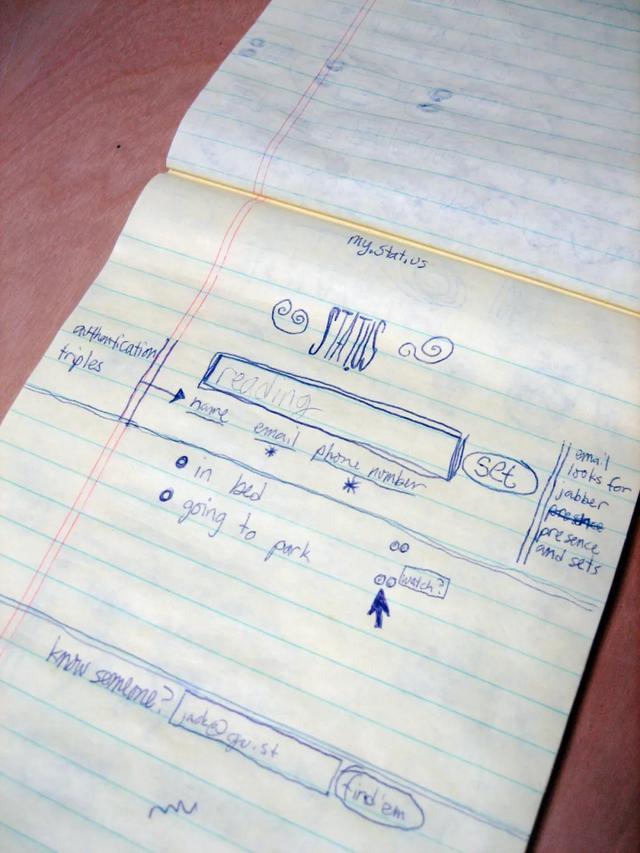 my.stat.us
STAT.US
authentication
triples
reading
name email phone number
set
email
looks for
jabber
presence
presence
and sets
in bed
going to park
watch?
know someone?
jack@gu.st
find'em